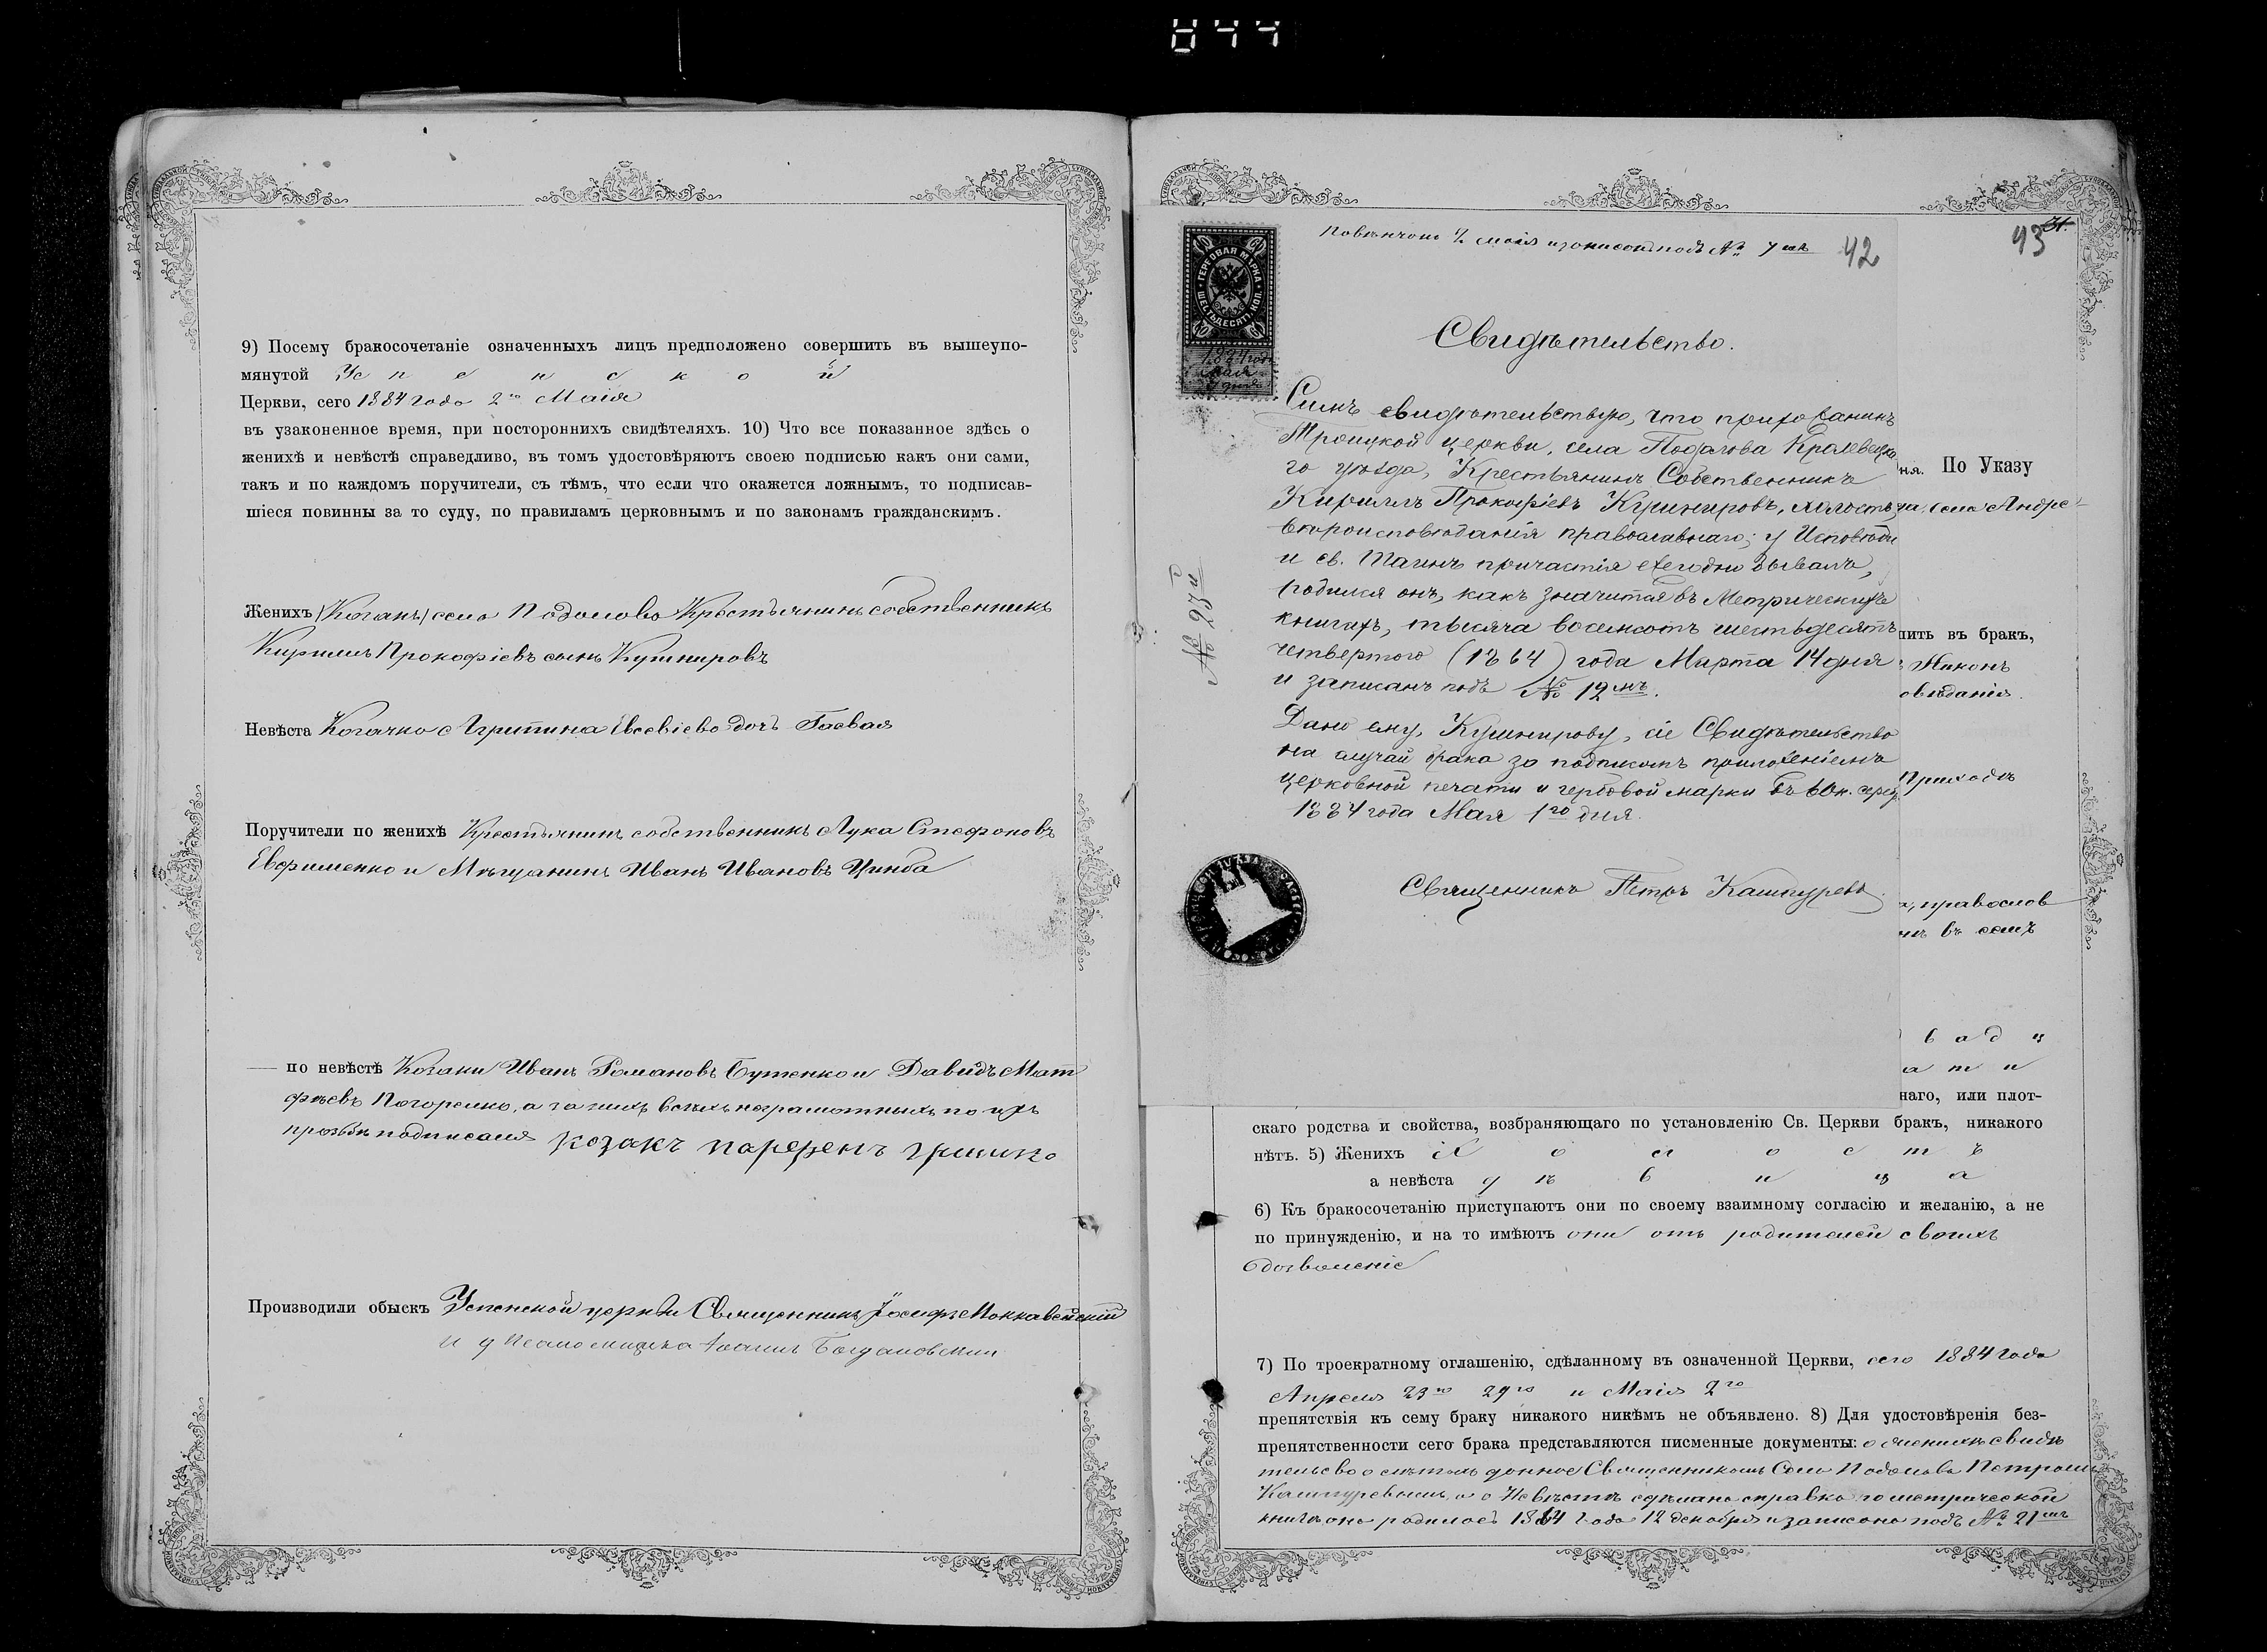 9) Посему бракосочетаніе означенныхъ лицъ предположено совершить въ вышеупо-
мянутой Успенской
Церкви, сего 1884 года 2го Маія
въ узаконенное время, при постороннихъ свидѣтеляхъ. 10) Что все показанное здѣсь о
женихѣ и невѣстѣ справедливо, въ томъ удостовѣряютъ своею подписью какъ они сами,
такъ и по каждомъ поручители, съ тѣмъ, что если что окажется ложнымъ, то подписав-
шіеся повинны за то суду, по правиламъ церковнымъ и по законамъ гражданскимъ.
Женихъ села Подолова Крестьянинъ собственникъ
Кирилъ Прокофіевъ сынъ Кушнировъ
Невѣста Козачка Агрипина Евсевіева дочъ Гаевая
Поручители по женихѣ Крестьянинъ собственникъ Лука Стефановъ
Ефименко и Мѣщанинъ Иванъ Ивановъ Цинба
по невѣстѣ Козаки Иванъ Романовъ Бутенко и Давидъ Мат
фѣевъ Погорелко, а за нихъ всѣхъ неграмотныхъ по ихъ
прозбѣ подписался козакъ парфенъ гришко
Производили обыскъ Успенской церкви Священникъ Іосифъ Маккавейскій
Іоаннъ Богдановскій
44
Повѣнчанъ 2 маія и записанъ подъ № 7мъ 42
43
31.
ГЕРБОВАЯ МАРКА
ШЕСТЬДЕСЯТЪ КОП.
60 60
1884 года
мая
1 дня
Свидѣтельство.
Симъ свидѣтельствую, что прихожанинъ
Троицкой церкви, села Подолова Кролевецка
го уѣзда, Крестьянинъ Собственникъ
Кирилъ Прокофіевъ Кушнировъ, холостъ,
вѣроисповѣданія православнаго; у Исповѣди
и св. Таинъ причастія ежегодно бывалъ,
родился онъ, какъ значится въ Метрическихъ
книгахъ, тысяча восемьсотъ шестьдесятъ
четвертого (1864) года Марта 14 дня
и записанъ подъ № 12мъ.
Дано ему, Кушнирову, сіе Свидѣтельство
на случай брака за подписомъ приложеніемъ
церковной печати и гербовой марки въ 60 к. сереб.
1884 года Мая 1го дня.
Священникъ Петръ Кашпуревъ
ня. По Указу
села Андре-
пить въ брак,
Никонъ
овѣданія.
Приходъ
, правослов
въ семъ
в а д ц
а т и
наго, или плот-
скаго родства и свойства, возбраняющаго по установленію Св. Церкви бракъ, никакого
нѣтъ. 5) Женихъ холостъ
а невѣста дѣвица
6) Къ бракосочетанію приступаютъ они по своему взаимному согласію и желанію, а не
по принужденію, и на то имѣютъ они отъ родителей своихъ
дозволеніе
7) По троекратному оглашенію, сдѣланному въ означенной Церкви, сего 1884 года
Апреля 23го 29го и Маія 2го
препятствія къ сему браку никакого никѣмъ не объявлено. 8) Для удостовѣренія без-
препятственности сего брака представляются писменные документы: о женихѣ свидѣ
тельсво о лѣтахъ данное Священникомъ Села Подолова Петромъ
Кашпуревымъ, а о Невѣстѣ сдѣлана справка по метрической
книгѣ она родилась 1864 года 12 декабря и записана подъ № 21мъ